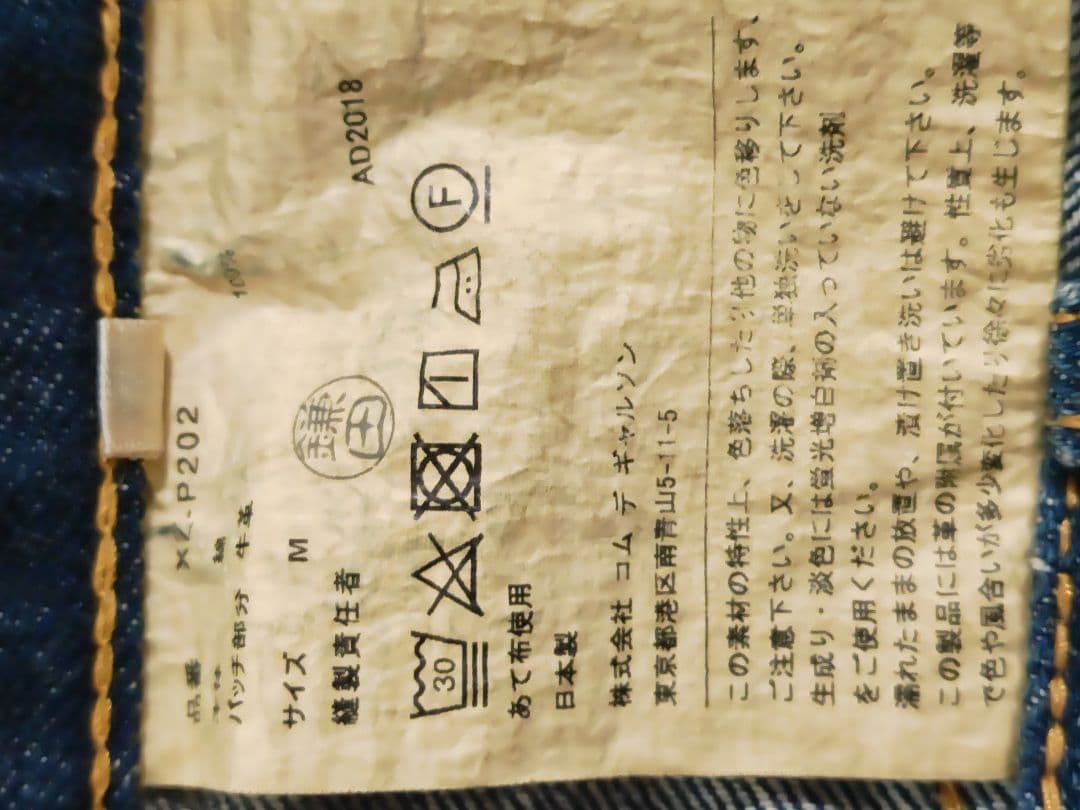 品番 XZ-P202
綿
パッチ部分 牛革 100%
サイズ M
縫製責任者 鎌田
AD2018
30 F
あて布使用
日本製
株式会社 コム デ ギャルソン
東京都港区南青山5-11-5
この素材の特性上、色落ちしたり他の物に色移りします、
ご注意下さい。又、洗濯の際、単独洗いをして下さい。
生成り・淡色には蛍光増白剤の入っていない洗剤
をご使用ください。
濡れたままの放置や、漬け置き洗いは避けて下さい。
この製品には革の附属が付いています。性質上、洗濯等
で色や風合いが多少変化したり徐々に劣化も生じます。